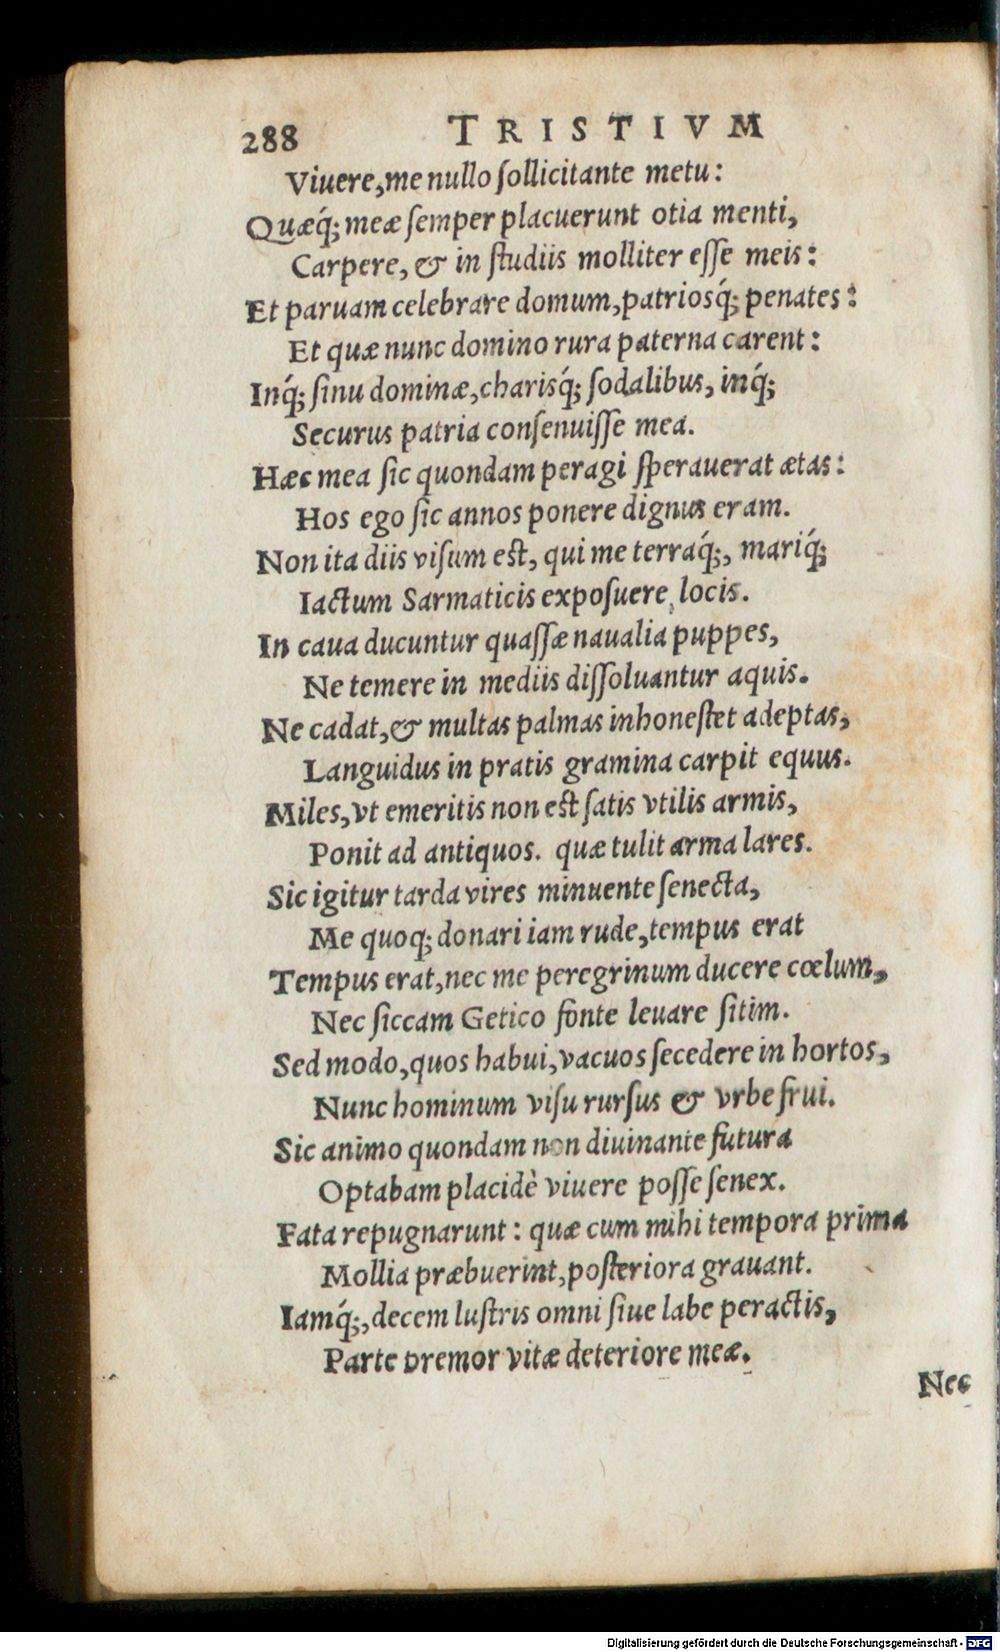 288 TRISTIVM
Viuere, me nullo ſollicitante metu:
Quæq́; meæ ſemper placuerunt otia menti,
Carpere, & in ſtudiis molliter eſſe meis:
Et paruam celebrare domum, patriosq́; penates:
Et quæ nunc domino rura paterna carent:
Inq́; ſinu dominæ, charisq́; ſodalibus, inq́;
Securus patria conſenuiſſe mea.
Hæc mea ſic quondam peragi ſperauerat ætas:
Hos ego ſic annos ponere dignus eram.
Non ita diis viſum eſt, qui me terraq́;, mariq́;
Iactum Sarmaticis expoſuere locis.
In caua ducuntur quaſſæ naualia puppes,
Ne temere in mediis diſſoluantur aquis.
Ne cadat, & multas palmas inhoneſtet adeptas,
Languidus in pratis gramina carpit equus.
Miles, vt emeritis non eſt ſatis vtilis armis,
Ponit ad antiquos. quæ tulit arma lares.
Sic igitur tarda vires minuente ſenecta,
Me quoq; donari iam rude, tempus erat
Tempus erat, nec me peregrinum ducere cœlum,
Nec ſiccam Getico fonte leuare ſitim.
Sed modo, quos habui, vacuos ſecedere in hortos,
Nunc hominum viſu rurſus & vrbe frui.
Sic animo quondam non diuinante futura
Optabam placidè viuere poſſe ſenex.
Fata repugnarunt: quæ cum mihi tempora prima
Mollia præbuerint, poſteriora grauant.
Iamq́;, decem luſtris omni ſiue labe peractis,
Parte premor vitæ deteriore meæ.
Nec
Digitalisierung gefördert durch die Deutsche Forschungsgemeinschaft - DFG